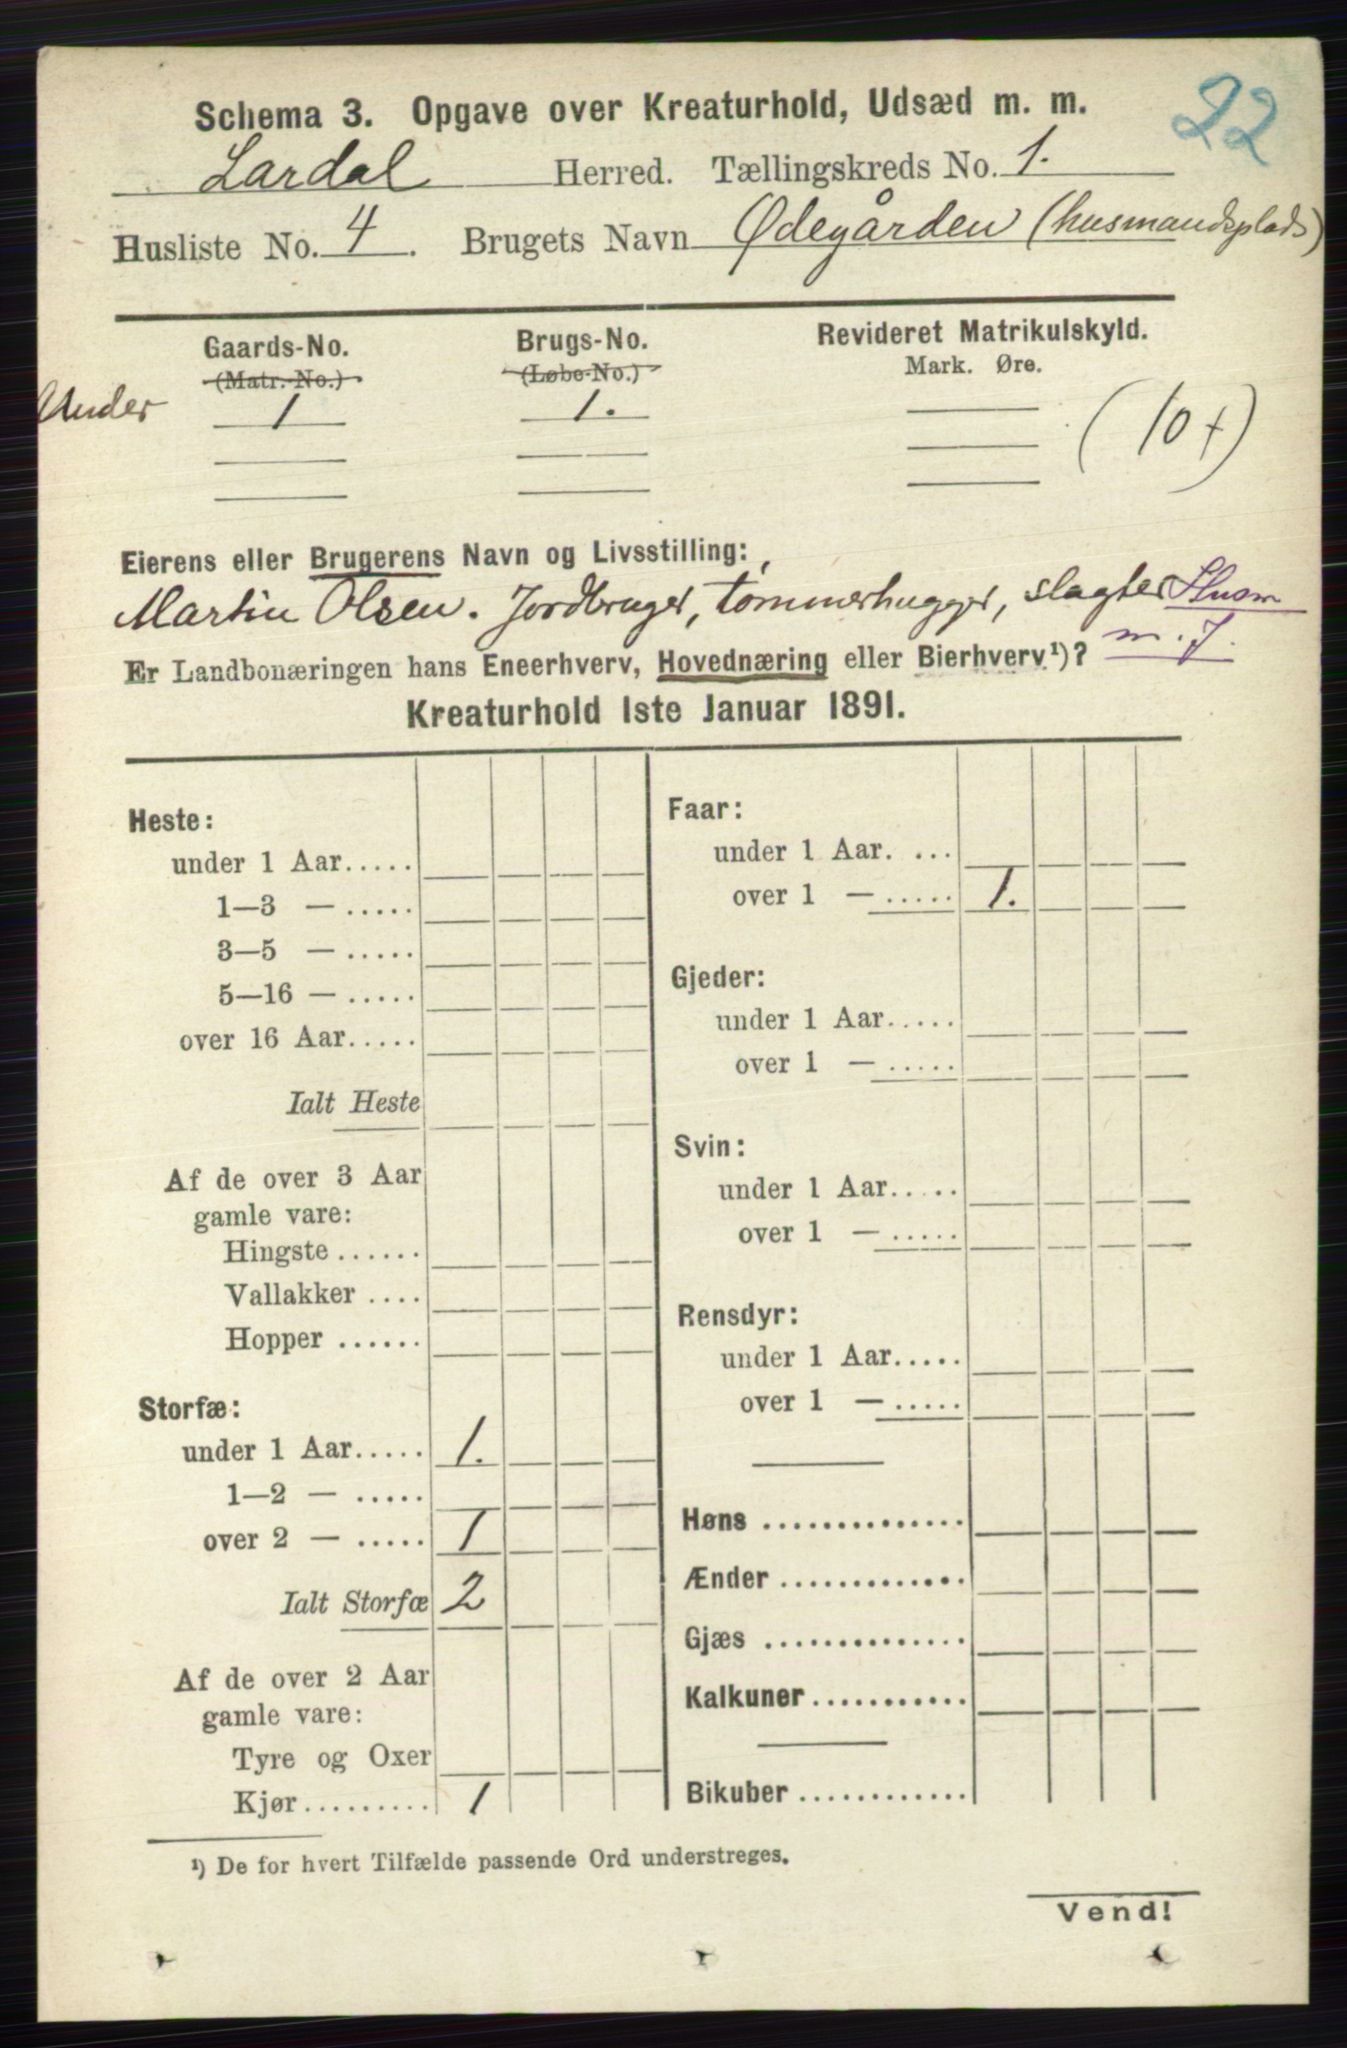 22
Schema 3. Opgave over Kreaturhold, Udsæd m. m.
Lardal Herred. Tællingskreds No. 1.
Husliste No. 4. Brugets Navn Ødegården (husmandsplads)
Gaards-No. Brugs-No. Revideret Matrikulskyld.
(Matr.-No.) (Løbe-No.) Mark. Øre.
Under 1 1. (10 +)
Eierens eller Brugerens Navn og Livsstilling:
Martin Olsen. Jordbruger, tømmerhugger, slagter Husm
m. J.
Er Landbonæringen hans Eneerhverv, Hovednæring eller Bierhverv¹)?
Kreaturhold 1ste Januar 1891.
Heste:
under 1 Aar.....
1—3 — .....
3—5 — .....
5—16 — .....
over 16 Aar.....
Ialt Heste
Af de over 3 Aar
gamle vare:
Hingste ......
Vallakker ....
Hopper ......
Storfæ:
under 1 Aar..... 1.
1—2 — .....
over 2 — ..... 1
Ialt Storfæ 2
Af de over 2 Aar
gamle vare:
Tyre og Oxer
Kjør......... 1
Faar:
under 1 Aar. ...
over 1 — ..... 1.
Gjeder:
under 1 Aar.....
over 1 — .....
Svin:
under 1 Aar.....
over 1 — .....
Rensdyr:
under 1 Aar.....
over 1 — .....
Høns ..............
Ænder .............
Gjæs ..............
Kalkuner ...........
Bikuber ............
¹) De for hvert Tilfælde passende Ord understreges.
Vend!